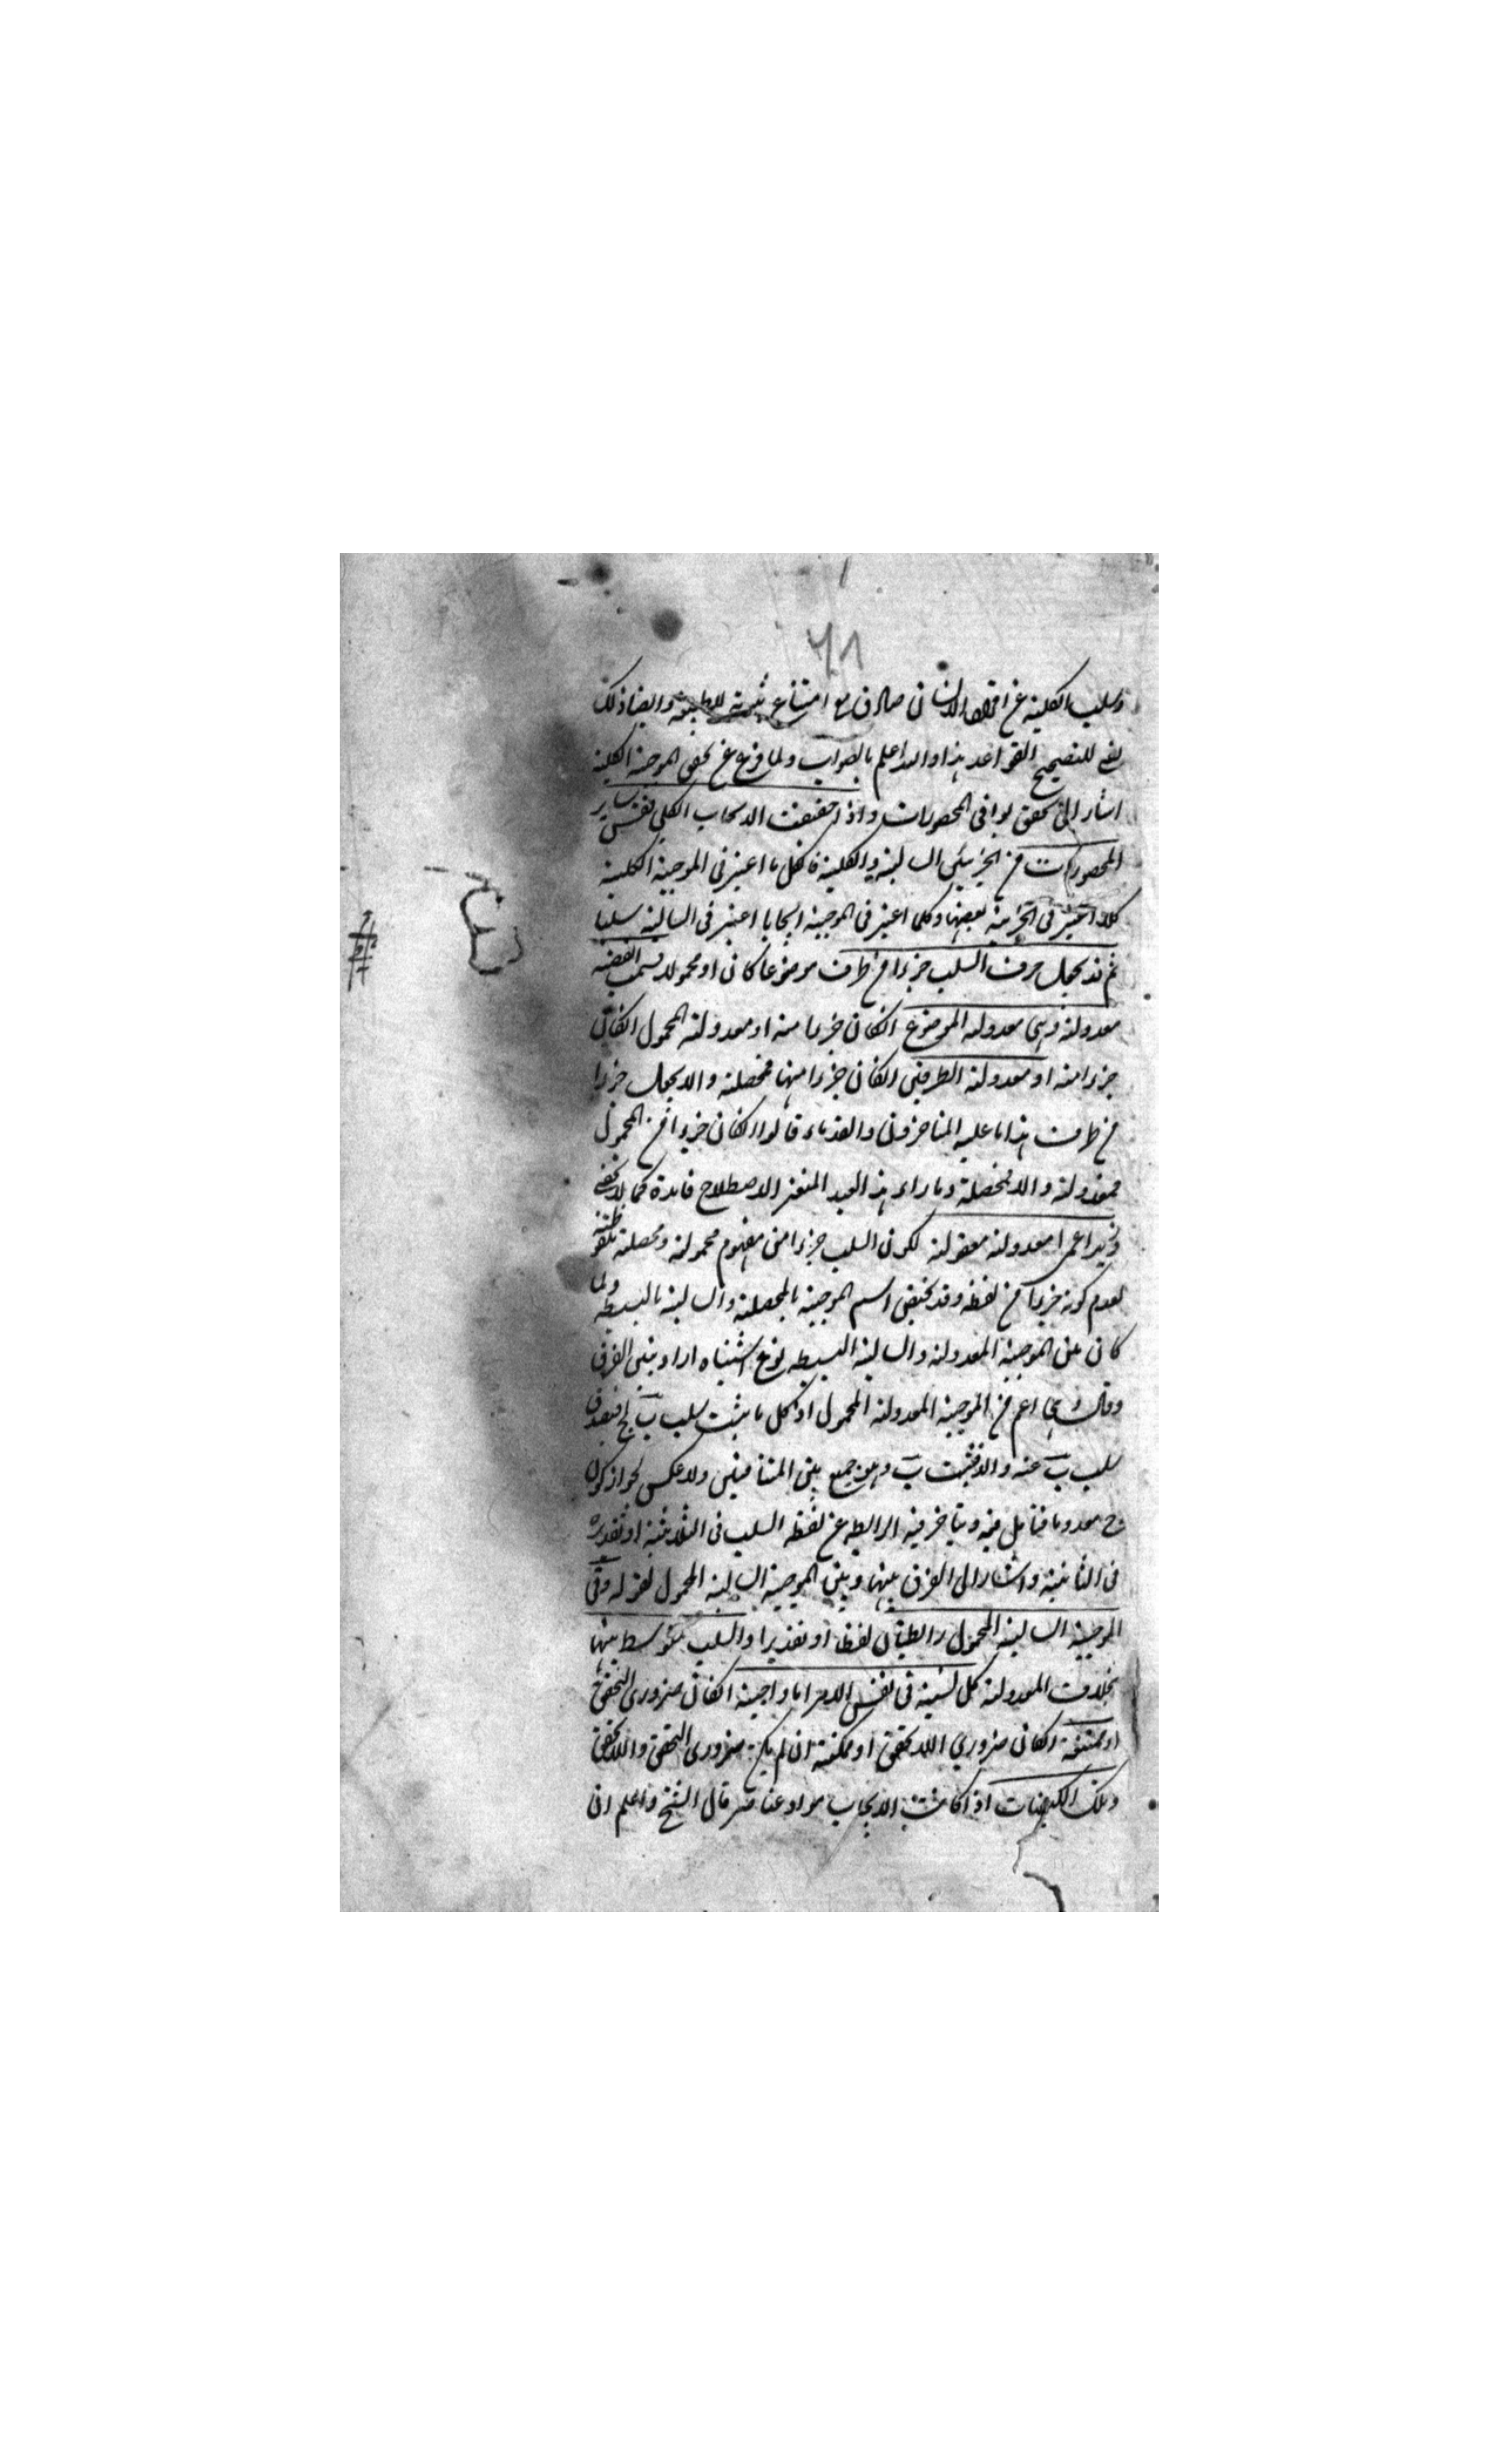 ٦٨
وسلب الكلية عن افراد الانسان صادق مع امتناع ثبوته للطبيعة وايضا ذلك
للتصحيح القواعد هذا والله اعلم بالصواب ولما فرغ عن تحقق الموجبة الكلية
اشار الى تحقق بواقى المحصورات واذا حققت الايجاب الكلى فقس ساير
المحصورات من الجزئيتين السالبة والكلية فانكل ما اعتبر فى الموجبة الكلية
كلا اعتبر فى الجزئية بعضها وكلما اعتبر فى الموجبة ايجابا اعتبر فى السالبة سلبا
ثم قد يجعل حرف السلب جزءا من طرف موضوعا كان او محمولا فسمت القضية
معدولة وهى معدولة الموضوع انكان جزءا منه او معدولة المحمول انكان
جزءا منه او معدولة الطرفين انكان جزءا منهما فمحصلة والا يجعل جزءا
من طرف هذا ما عليه المتاخرون والقدماء قالوا انكان جزءا من المحمول
فمعدولة والا فمحصلة وما راء هذا العبد المتغير الاصطلاح فايدة كما لا يخفى
وزيد اعمى معدولة معقولة لكون السلب جزءا من مفهوم محموله ومحصلة ملفوظة
لعدم كونه جزءا من لفظه وقد يختص اسم الموجبة بالمحصلة والسالبة بالبسيطة ولما
كان بين الموجبة المعدولة والسالبة البسيطة نوع اشتباه اراد بيان الفرق
وقال وهى اعم من الموجبة المعدولة المحمول اذ كل ما يثبت سلب ب لج فيصدق
سلب ب عنه والا فيثبت ب وهو جمع بين المتنافيين ولا عكس لجواز كون
ج معدوما فتامل فيه ويتاخر فيه الرابطة عن لفظ السلب فى الثلاثية او تقديره
فى الثنائية واشار الى الفرق بينها وبين الموجبة السالبة المحمول لقوله وفى
الموجبة السالبة المحمول رابطتان لفظا او تقديرا والسلب متوسط بينهما
بخلاف المعدولة كل نسبة فى نفس الامر اما واجبة انكان ضرورى التحقق
او ممتنعة انكان ضرورى اللاتحقق او ممكنة ان لم يكن ضرورى التحقق واللاتحقق
وتلك الكيفيات اذا كانت الايجاب مواد عناصر قال الشيخ واعلم ان